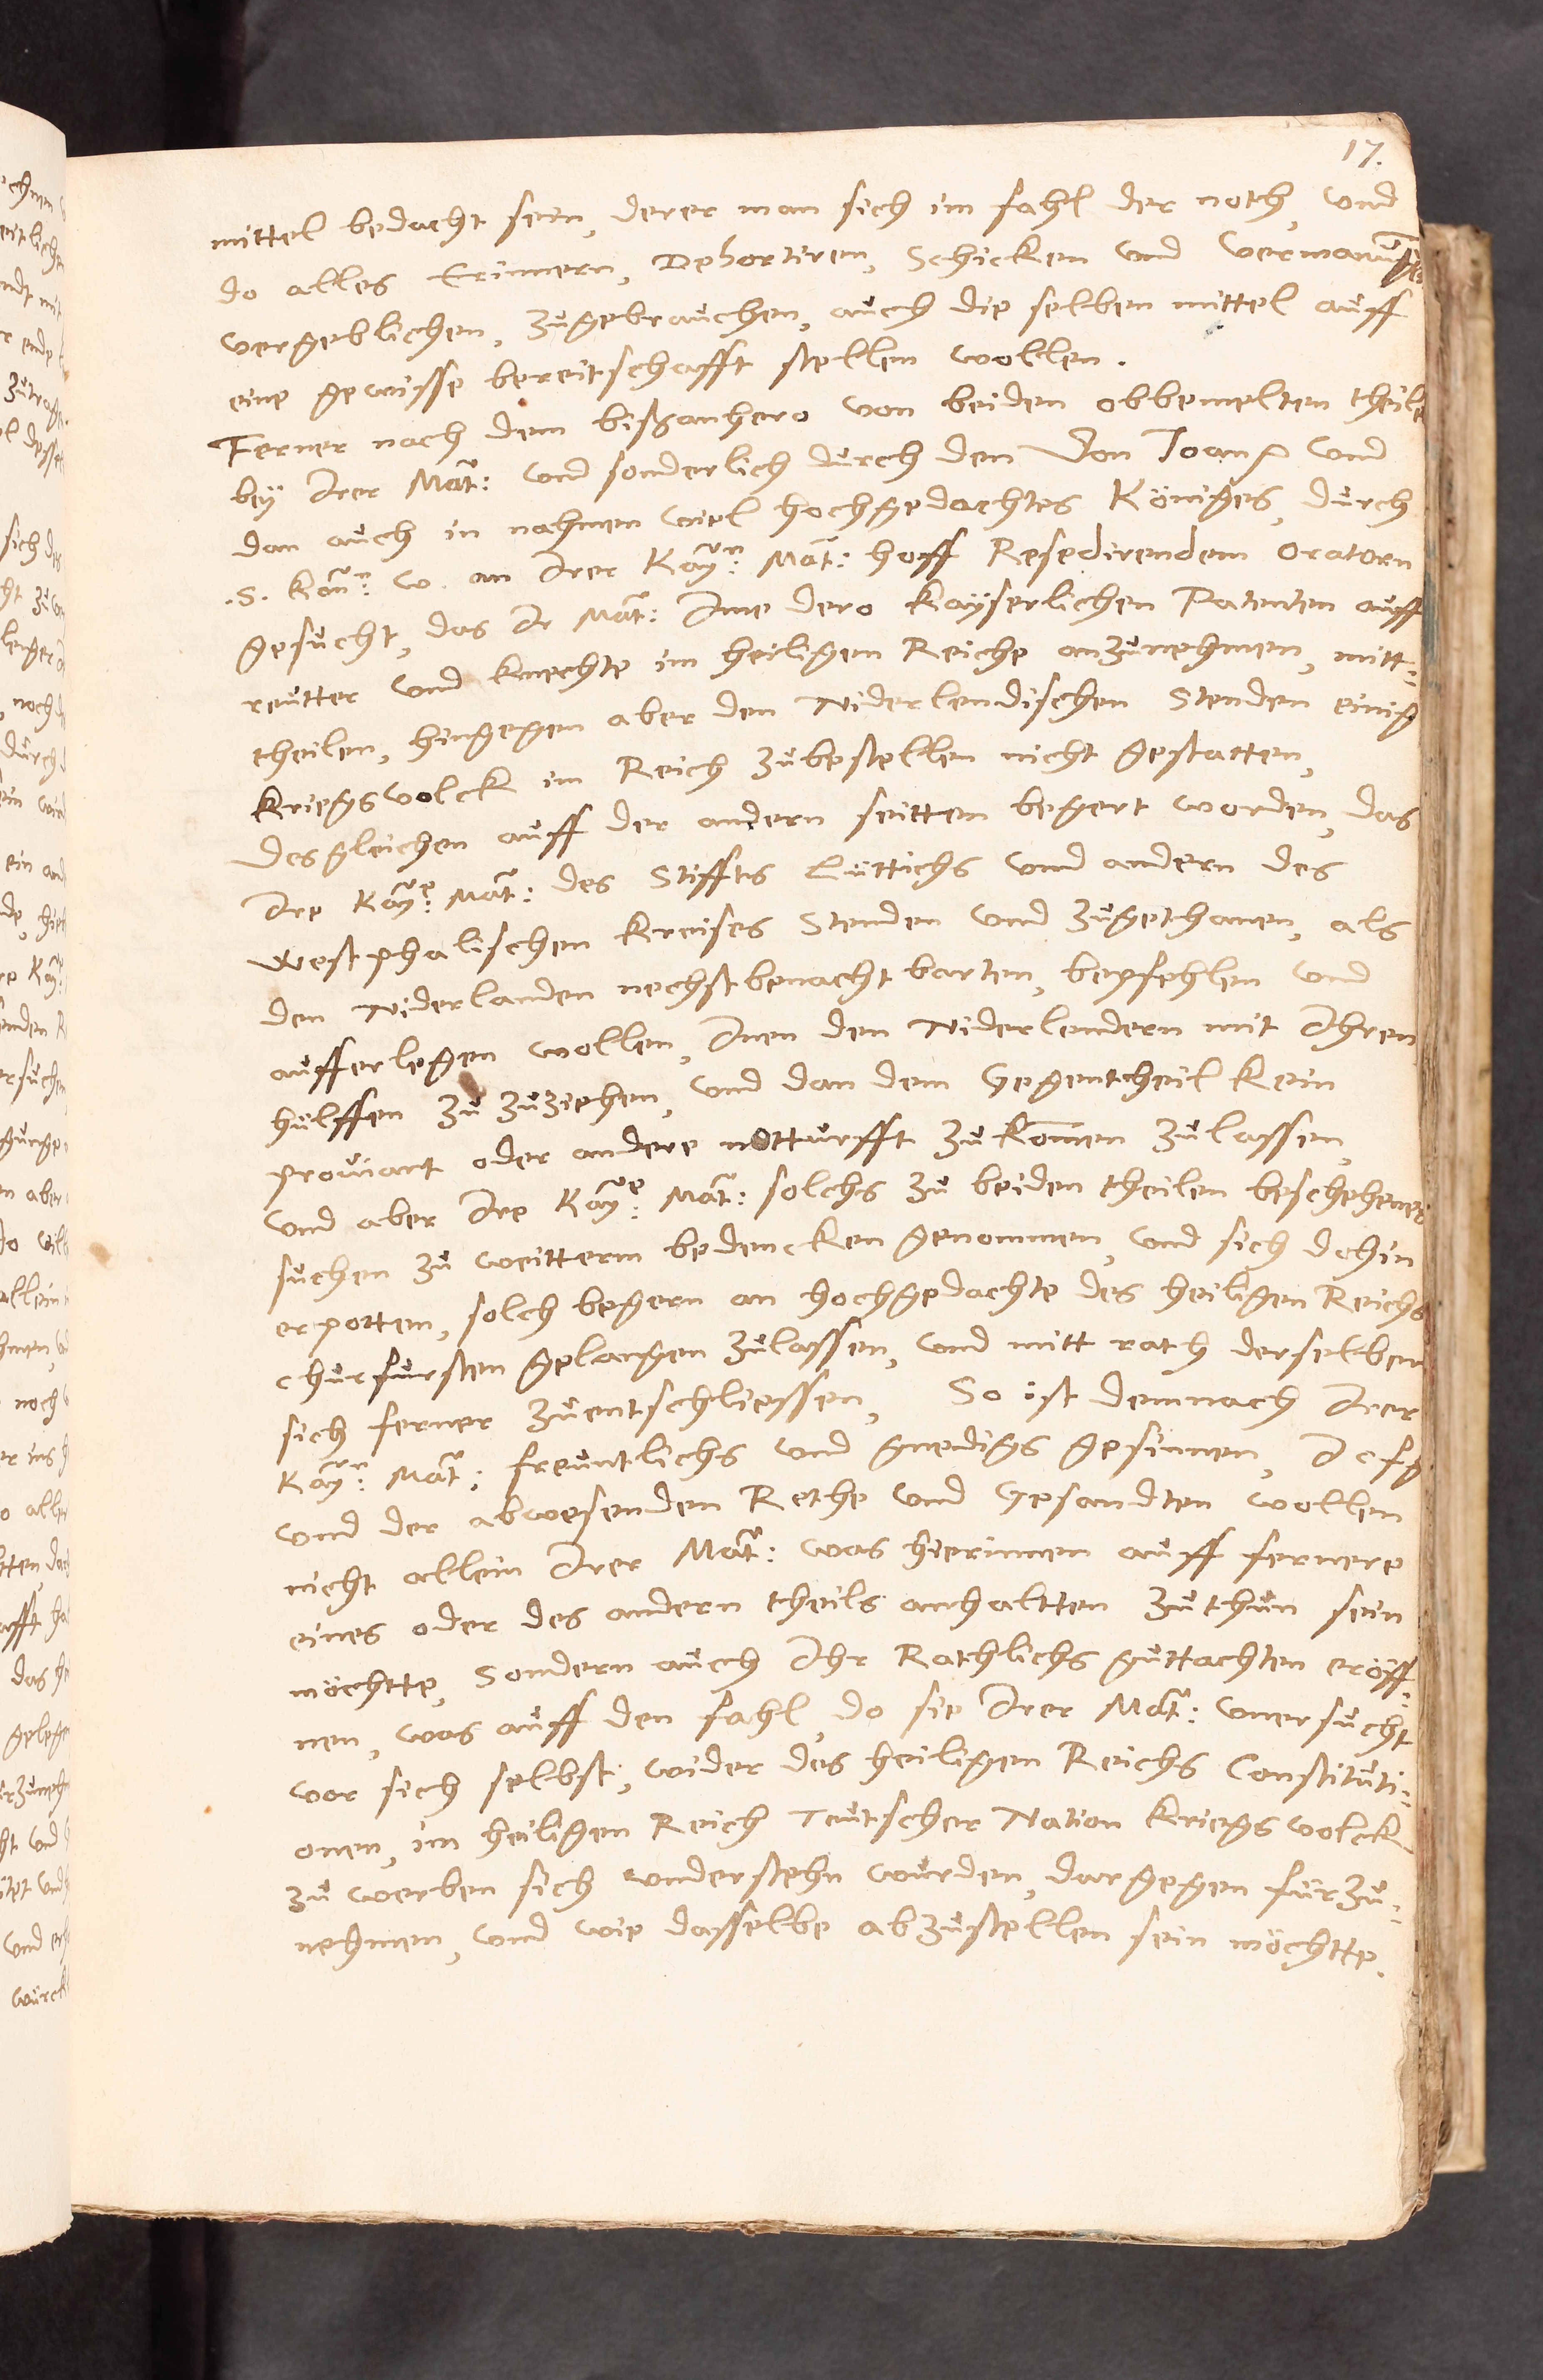 17.
mittel bedacht sein, derer man sich im fahl der noth, und
do alles Erinnern, Dehortiren, Schicken und vermanung
vergeblichen, zugebrauchen, auch die selben mittel auff
eine gewisse bereitschafft stellen wollen.
Ferner nach dem bißanhero von beiden obbemelten theile
bey Irer Mat: und sonderlich durch den Don Joan und
dan auch in nahmen viel hochgedachtes Königes, durch
.S. Kön: w. an Irer Kay:n Mat: hoff Resedirendem Oratorn
gesucht, das Ir Mat: Ime dero Kayserlichen Patenten auff
reutter und knechte im heiligen Reiche anzunehmen, mitt:
theilen, hingegen aber den Niderlendischen Stenden einig
Kriegsvolck im Reich zubestellen nicht gestatten,
desgleichen auff der andern seitten begert worden, das
Ire Kay:e Mat: des Stiffts Lüttichs und andern des
Westphalischen Kreises Stenden und zugethanen, als
den Niderlanden nechstbenachtbarten, bepfehlen und
aufferlegen wollen, Inen den Niderlendern mit Ihren
hülffen zu zuziehen, und dan dem Gegentheil kein
proviant oder andere notturfft zukom̄en zulassen,
und aber Ire Kay:e Mat: solchs zu beiden theilen beschehenes
suchen zu weitterm bedencken genommen, und sich dohin
erpotten, solch begern an hochgedachte des heiligen Reichs
churfursten gelangen zulassen, und mitt rath derselben
sich ferner zuentschliessen, So ist demnach Irer
Kay:n Mat: freuntlichs und gnedigs gesinnen, I c f g
und der abwesenden Rethe und Gesandten wollen
nicht allein Irer Mat: was hierinnen auff fernere
eines oder des andern theils anhaltten zuthun sein
möchtte, Sondern auch Ihr Rathlichs guttachten eröff:
nen, was auff den fahl, do sie Irer Mat: unersucht
vor sich selbst, wider des heiligen Reichs Constituti:
onen, im heiligen Reich Teutscher Nation Kriegsvolck
zu werben sich understehn wurden, dargegen fürzu:
nehmen, und wie dasselbe abzustellen sein möchtte.